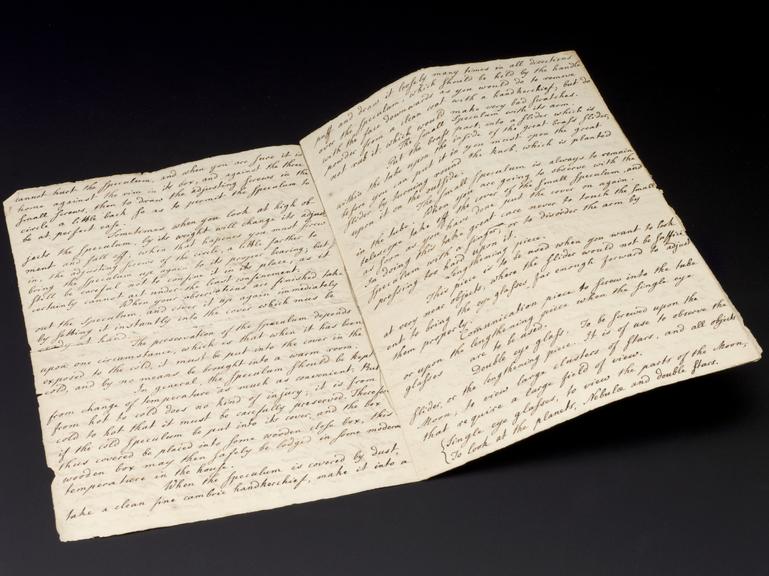 cannot hurt the Speculum, and when you are sure it is
home against the rim in its box, and against the three
small screws, then to draw the adjusting screws in the
circle a little back so as to permit the Speculum to
be at perfect ease.
Sometimes when you look at high ob
jects the Speculum, by its weight will change its adjust
ment and fall off, when that happens you must screw
in the adjusting screws of the circle, a little farther to
bring the Speculum up again to its proper bearing, but
still be careful not to confine it in its place, as it
certainly cannot act under the least confinement.
When your observations are finished take
out the Speculum, and cover it up again immediately
by putting it instantly into the cover which must be
ready at hand.
The preservation of the Speculum depends
upon one circumstance, which is that when it has been
exposed to the cold, it must be put into the cover in the
cold, and by no means be brought into a warm room.
In general, the Speculum should be kept
from change of temperature as much as convenient; But
from hot to cold does no kind of injury; it is from
cold to hot that it must be carefully preserved. Therefore
if the cold Speculum be put into its cover, and the box
thus covered be placed into some wooden close box, this
wooden box may then safely be lodged in some moderate
temperature in the house.
When the Speculum is covered by dust,
take a clean fine cambric handkerchief, make it into a
puff and draw it loosely many times in all directions
over the Speculum, which should be held by the handle
with the face downwards as you would do to remove
powder from a clean coat with a handkerchief; but do
not rub it; which would make very bad scratches.
The small Speculum with its arm.
Put the brass part, into a slider which is
within the tube upon the inside of the great brass slider,
before you can put it in you must open the great
slider by turning round the knob, which is planted
upon it on the outside.
The small Speculum is always to remain
in the tube. When you are going to observe with the
telescope take off the cover of the small Speculum, and
as soon as you have done put the cover on again.
In doing this take great care never to touch the small
Speculum with a finger, or to disorder the arm by
pressing too hard upon it.
Lengthening piece.
This piece is to be used when you want to look
at very near objects, where the slider would not be suffici
ent to bring the eye glasses far enough forward to adjust
them properly.
Communication piece to screw into the tube
or upon the lengthening piece when the single eye
glasses are to be used.
Double eye glass. To be screwed upon the
slider, or the lengthening piece. It is of use to observe the
Moon, to view large clusters of Stars, and all objects
that require a large field of view.
Single eye glasses, to view the parts of the Moon,
To look at the planets, Nebulæ and double Stars.